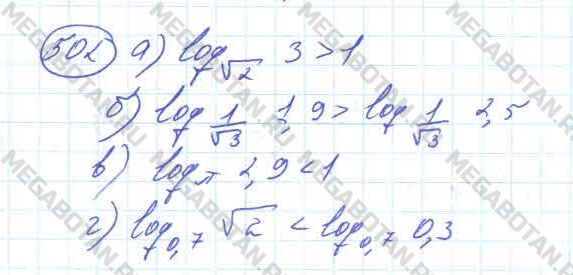 502 а) log_√2 3 > 1
б) log_1/√3 1,9 > log_1/√3 2,5
в) log_π 2,9 < 1
г) log_0,7 √2 < log_0,7 0,3
MEGABOTAN.RU